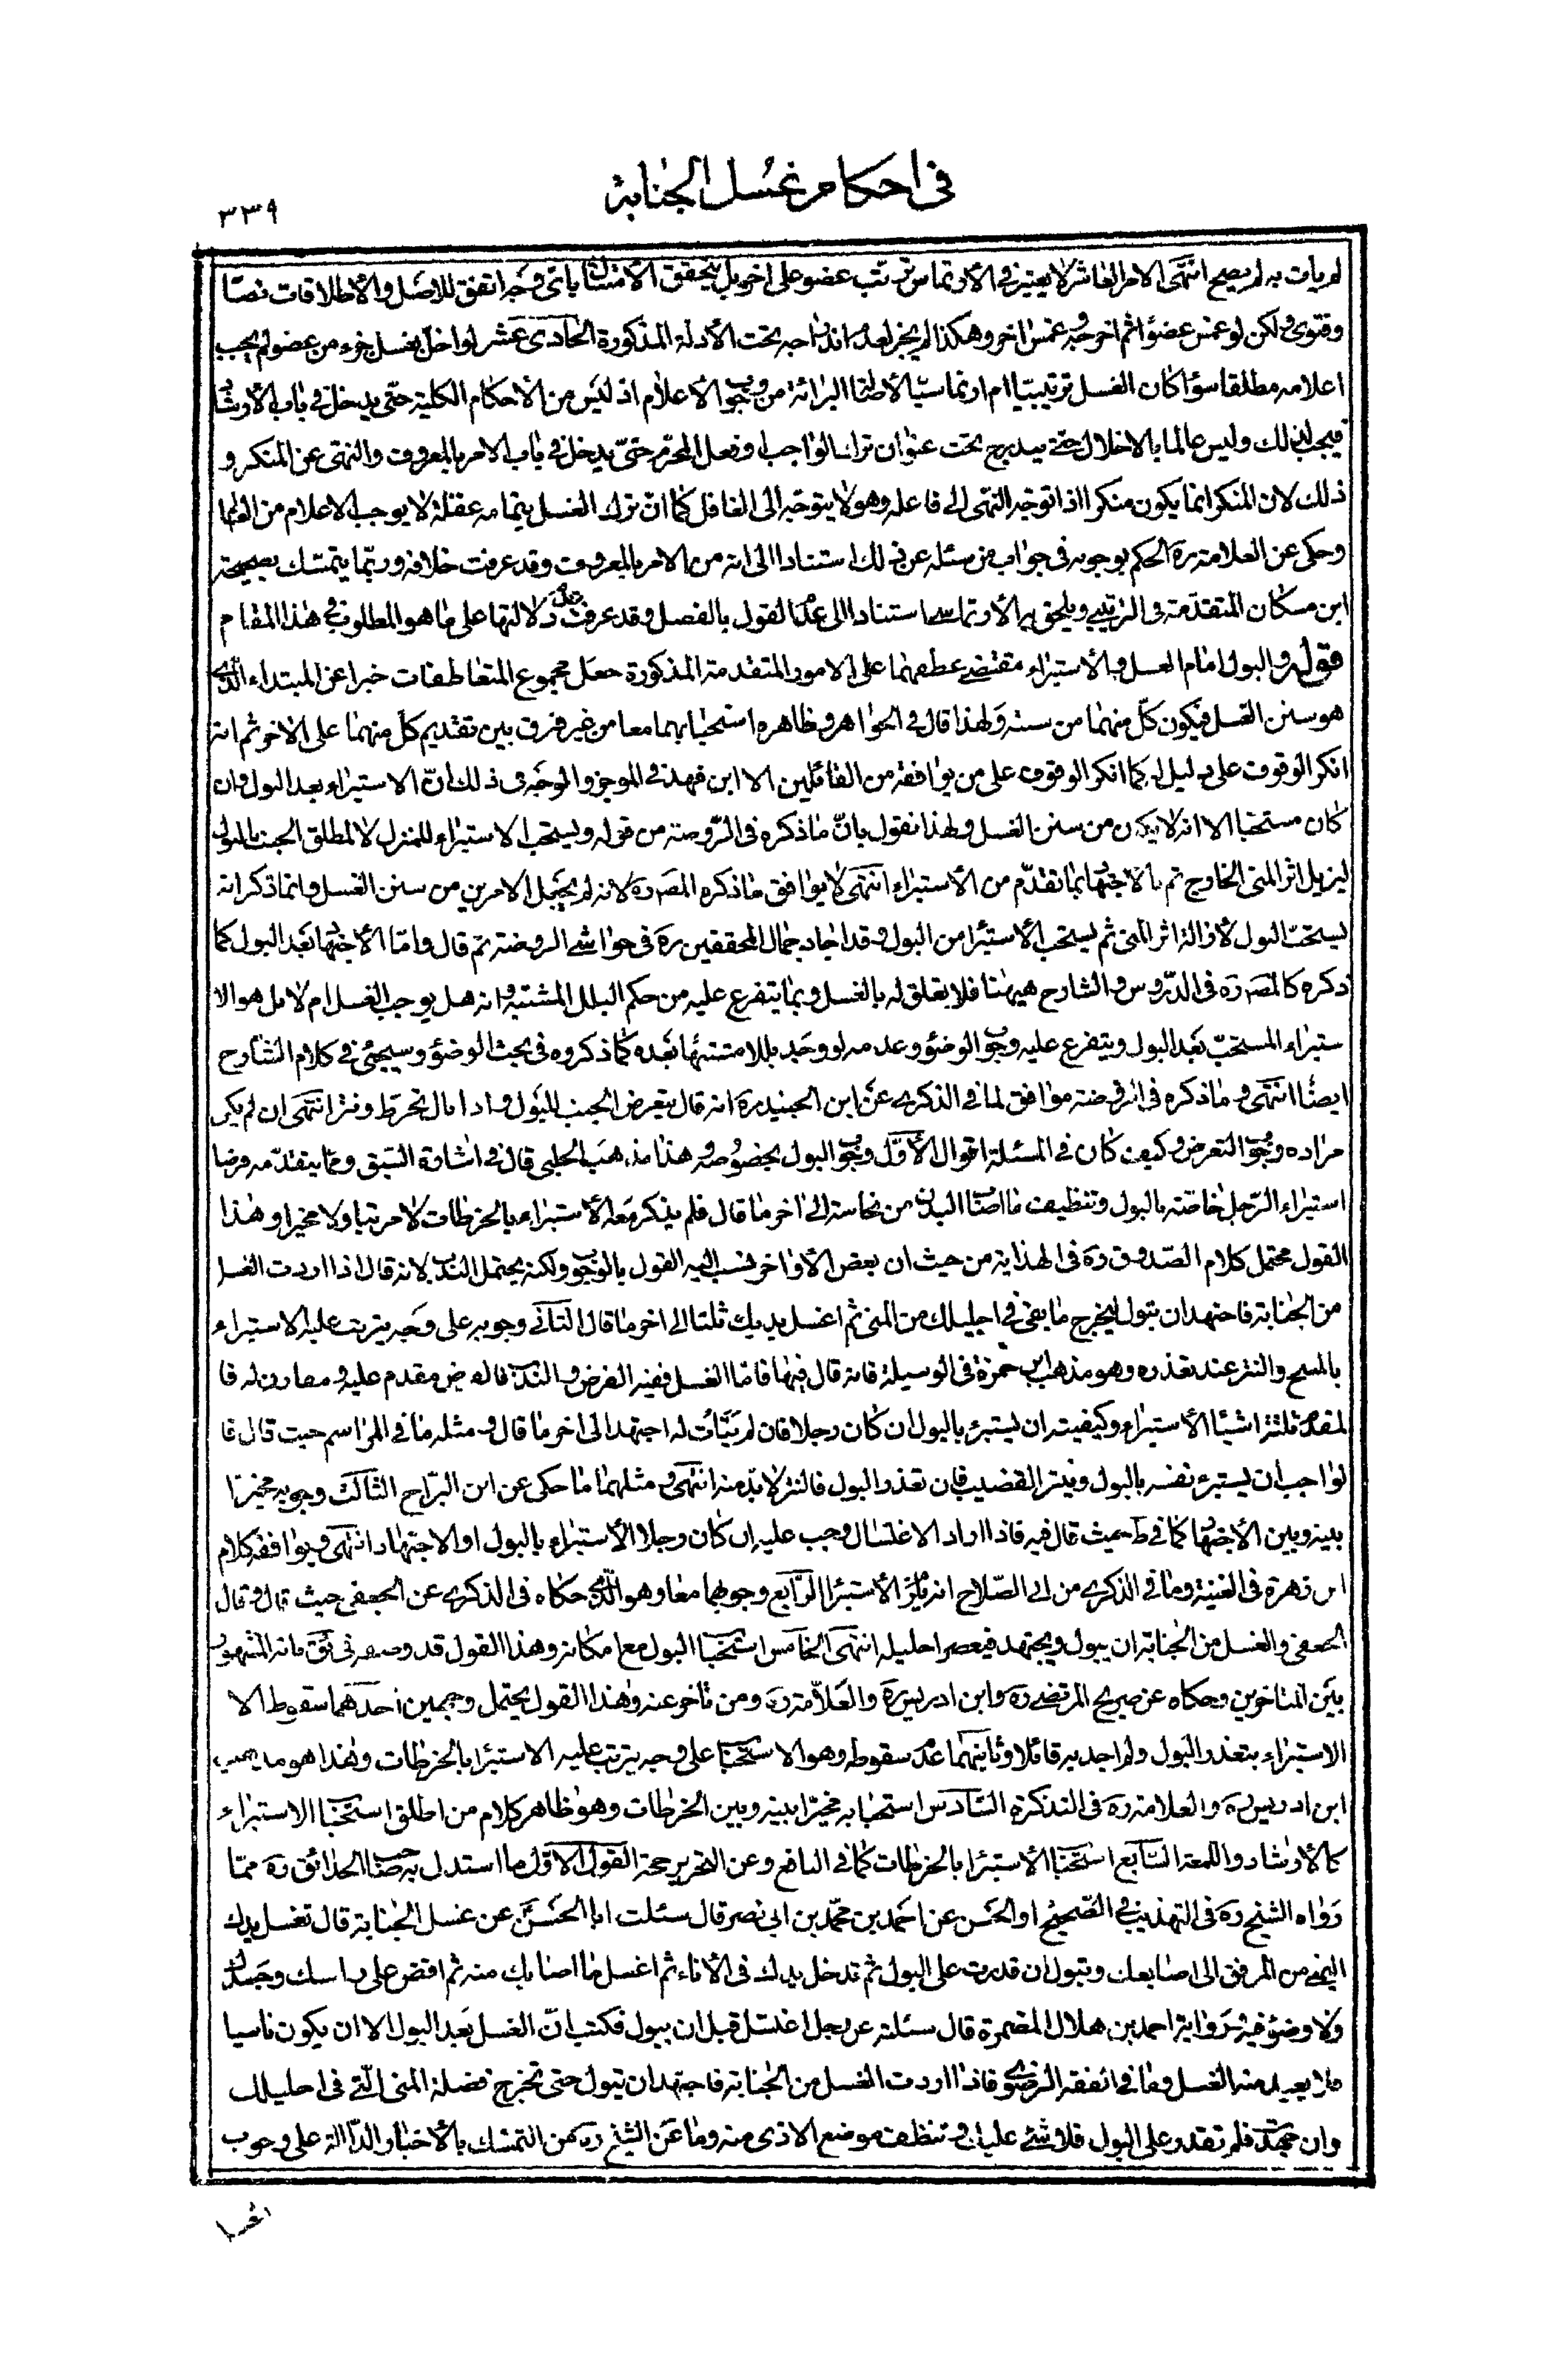 في احكام غسل الجنابة
٣٣٩
لم يات به لم يصح انتهى الامر العاشر لا يعتبر في الارتماس ترتب عضو على اخر بل يتحقق الامتثال باى وجه اتفق للاصل والاطلاقات نصا
وفتوى ولكن لو غمس عضوا ثم اخرجه وغمس اخر وهكذا لم يجز لعدم اندراجه تحت الأدلة المذكورة الحادى عشر لو اخل بغسل جزء من عضو لم يجب
اعلامه مطلقا سواء كان الغسل ترتيبيا ام ارتماسيا لأصالة البرائة من وجوب الاعلام اذ ليس من الاحكام الكلية حتى يدخل في باب الارشاد
فيجب لذلك وليس عالما بالاخلال حتى يندرج تحت عنوان ترك الواجب او فعل المحرم حتى يدخل في باب الامر بالمعروف والنهى عن المنكر و
ذلك لان المنكر انما يكون منكرا اذا توجه النهى الى فاعله وهو لا يتوجه الى الغافل كما ان ترك الغسل بتمامه غفلة لا يوجب الاعلام من العالم
وحكى عن العلامة ره الحكم بوجوبه في جواب من سئله عن ذلك استنادا الى انه من الامر بالمعروف وقد عرفت خلافه وربما يتمسك بصحيحة
ابن مسكان المتقدمة في الترتيبي ويلحق به الارتماسى استنادا الى عدم القول بالفصل وقد عرفت عدم دلالتها على ما هو المطلوب في هذا المقام
قوله والبول امام الغسل والاستبراء مقتضى عطفهما على الامور المتقدمة المذكورة جعل مجموع المتعاطفات خبرا عن المبتداء الذى
هو سنن الغسل فيكون كل منهما من سننه ولهذا قال في الجواهر وظاهره استحبابهما معا من غير فرق بين تقديم كل منهما على الاخر ثم انه
انكر الوقوف على دليل له كما انكر الوقوف على من يوافقه من القائلين الا ابن فهد في الموجز والوجه في ذلك ان الاستبراء بعد البول وان
كان مستحبا الا انه لا يكون من سنن الغسل ولهذا نقول بان ما ذكره في الروضة من قوله ويستحب الاستبراء للمنزل لا لمطلق الجنب بالبول
ليزيل اثر المنى الخارج ثم بالاجتهاد بما تقدم من الاستبراء انتهى لا يوافق ما ذكره المصنف ره لانه لم يجعل الامرين من سنن الغسل وانما ذكر انه
يستحب البول لازالة اثر المنى ثم يستحب الاستبراء من البول وقد اجاد جمال المحققين ره في حواشى الروضة ثم قال واما الاجتهاد بعد البول كما
ذكره كالمصنف ره في الدروس والشارح هيهنا فلا تعلق له بالغسل وبما يتفرع عليه من حكم البلل المشتبه وانه هل يوجب الغسل ام لا بل هو الا
ستبراء المستحب بعد البول ويتفرع عليه وجوب الوضوء وعدمه لو وجد بللا مشتبها بعده كما ذكروه في بحث الوضوء وسيجئ في كلام الشارح
ايضا انتهى وما ذكره في الروضة موافق لما في الذكرى عن ابن الجنيد ره انه قال يتعرض الجنب للبول واذا بال يخرط ونتر انتهى ان لم يكن
مراده وجوب التعرض وكيف كان في المسئلة اقوال الأول وجوب البول بخصوصه وهذا مذهب الحلبى قال في اشارة السبق ومما يتقدمه فرضا
استبراء الرجل خاصة بالبول وتنظيف ما اصاب البدن من نجاسة الى اخر ما قال فلم يذكر معه الاستبراء بالخرطات لا مرتبا ولا مخيرا وهذا
القول محتمل كلام الصدوق ره في الهداية من حيث ان بعض الاواخر نسب اليه القول بالوجوب ولكنه يحتمل الندب لانه قال اذا اردت الغسل
من الجنابة فاجتهد ان تبول ليخرج ما بقى في احليلك من المنى ثم اغسل يديك ثلثا الى اخر ما قال الثانى وجوبه على وجه يترتب عليه الاستبراء
بالمسح والنتر عند تعذره وهو مذهب ابن حمزة في الوسيلة فانه قال فيها فاما الغسل ففيه الفرض والندب فالفرض مقدم عليه ومقارن له فا
لمقدم ثلثة اشياء الاستبراء وكيفيته ان يستبرئ بالبول ان كان رجلا فان لم يتأت له اجتهد الى اخر ما قال ومثله ما في المراسم حيث قال فا
لواجب ان يستبرء نفسه بالبول وينتر القضيب فان تعذر البول فالنتر لابد منه انتهى ومثلهما ما حكى عن ابن البراج الثالث وجوبه مخيرا
بينه وبين الاجتهاد كما في ط حيث قال فيه فاذا اراد الاغتسال وجب عليه ان كان رجلا الاستبراء بالبول او الاجتهاد انتهى ويوافقه كلام
ابن زهرة في الغنية وما في الذكرى من ابى الصلاح انه يلزم الاستبراء الرابع وجوبهما معا وهو الذى حكاه في الذكرى عن الجعفى حيث قال وقال
الجعفى والغسل من الجنابة ان يبول ويجتهد فيعصر احليله انتهى الخامس استحباب البول مع امكانه وهذا القول قد وصفه في ئق بانه المشهور
بين المتاخرين وحكاه عن صريح المرتضى ره وابن ادريس ره والعلامة ره ومن تاخر عنه وهذا القول يحتمل وجهين احدهما سقوط الا
الاستبراء بتعذر البول ولم اجد به قائلا وثانيهما عدم سقوطه وهو الاستحباب على وجه يترتب عليه الاستبراء بالخرطات وهذا هو مذهب
ابن ادريس ره والعلامة ره في التذكرة السادس استحبابه مخيرا بينه وبين الخرطات وهو ظاهر كلام من اطلق استحباب الاستبراء
كالارشاد واللمعة السابع استحباب الاستبراء بالخرطات كما في النافع وعن التحرير حجة القول الاول ما استدل به صاحب الحدائق ره مما
رواه الشيخ ره في التهذيب في الصحيح او الحسن عن احمد بن محمد بن ابى نصر قال سئلت ابا الحسن عن غسل الجنابة قال تغسل يدك
اليمنى من المرفق الى اصابعك وتبول ان قدرت على البول ثم تدخل يدك في الاناء ثم اغسل ما اصابك منه ثم افض على راسك وجسدك
ولا وضوء فيه ورواية احمد بن هلال المضمرة قال سئلته عن رجل اغتسل قبل ان يبول فكتب ان الغسل بعد البول الا ان يكون ناسيا
فلا يعيد منه الغسل وما في الفقه الرضوى فاذا اردت الغسل من الجنابة فاجتهد ان تبول حتى تخرج فضلة المنى التى في احليلك
وان جهدت فلم تقدر على البول فلا شئ عليك وتنظف موضع الاذى منه وما عن الشيخ ره من التمسك بالأخبار الدالة على وجوب